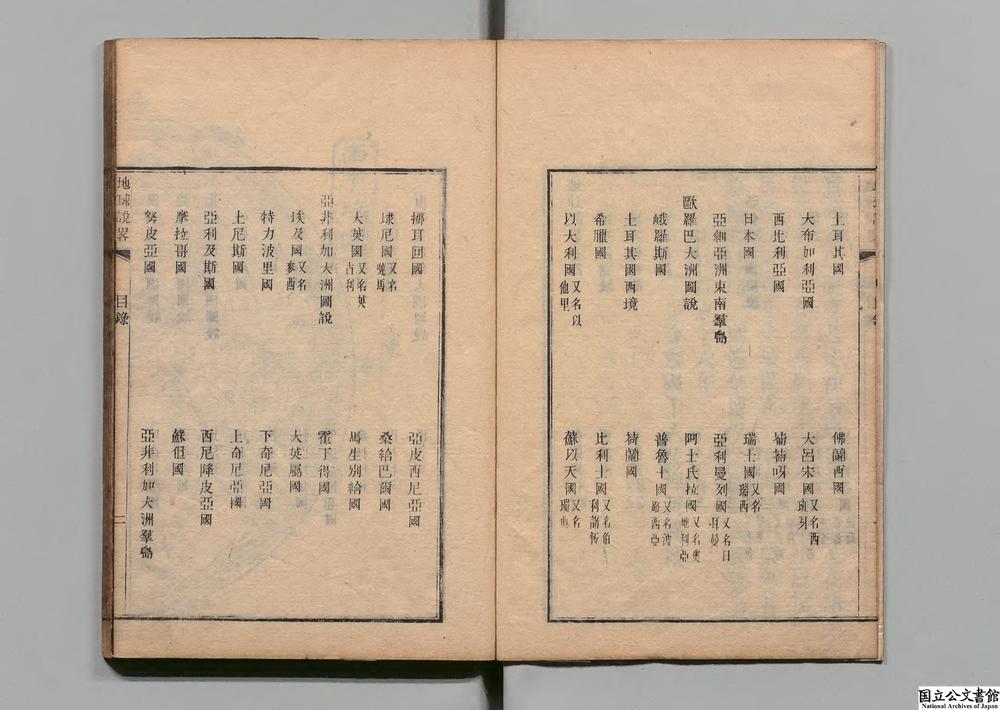 土耳其國
大布加利亞國
西比利亞國
日本國
亞細亞洲東南羣島
歐羅巴大洲圖說
峨羅斯國
土耳其國西境
希臘國
以大利國又名以他里
佛蘭西國
大呂宋國又名西班牙
葡萄呀國
瑞士國又名瑞西
亞利曼列國又名日耳曼
阿士氏拉國又名奧地利亞
普魯士國又名波路西亞
荷蘭國
比利士國又名伯利諸恆
蘇以天國又名瑞典
挪耳回國
埭尼國又名嗹馬
大英國又名英吉利
亞非利加大洲圖說
埃及國又名麥西
特力波里國
土尼斯國
亞利及斯國
摩拉哥國
努皮亞國
亞皮西尼亞國
桑給巴爾國
馬生別給國
霍丁得國
大英屬國
下奇尼亞國
上奇尼亞國
西尼降皮亞國
蘇但國
亞非利加大洲羣島
地球說畧
目錄
二
国立公文書館
National Archives of Japan